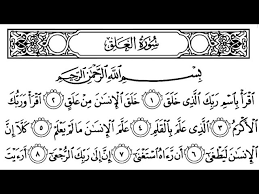 سُورَةُ الْعَلَقِ
بِسْمِ اللَّهِ الرَّحْمَٰنِ الرَّحِيمِ
اقْرَأْ بِاسْمِ رَبِّكَ الَّذِي خَلَقَ ١ خَلَقَ الْإِنسَٰنَ مِنْ عَلَقٍ ٢ اقْرَأْ وَرَبُّكَ
الْأَكْرَمُ ٣ الَّذِي عَلَّمَ بِالْقَلَمِ ٤ عَلَّمَ الْإِنسَٰنَ مَا لَمْ يَعْلَمْ ٥ كَلَّا إِنَّ
الْإِنسَٰنَ لَيَطْغَىٰ ٦ أَن رَّءَاهُ اسْتَغْنَىٰ ٧ إِنَّ إِلَىٰ رَبِّكَ الرُّجْعَىٰ ٨ أَرَءَيْتَ